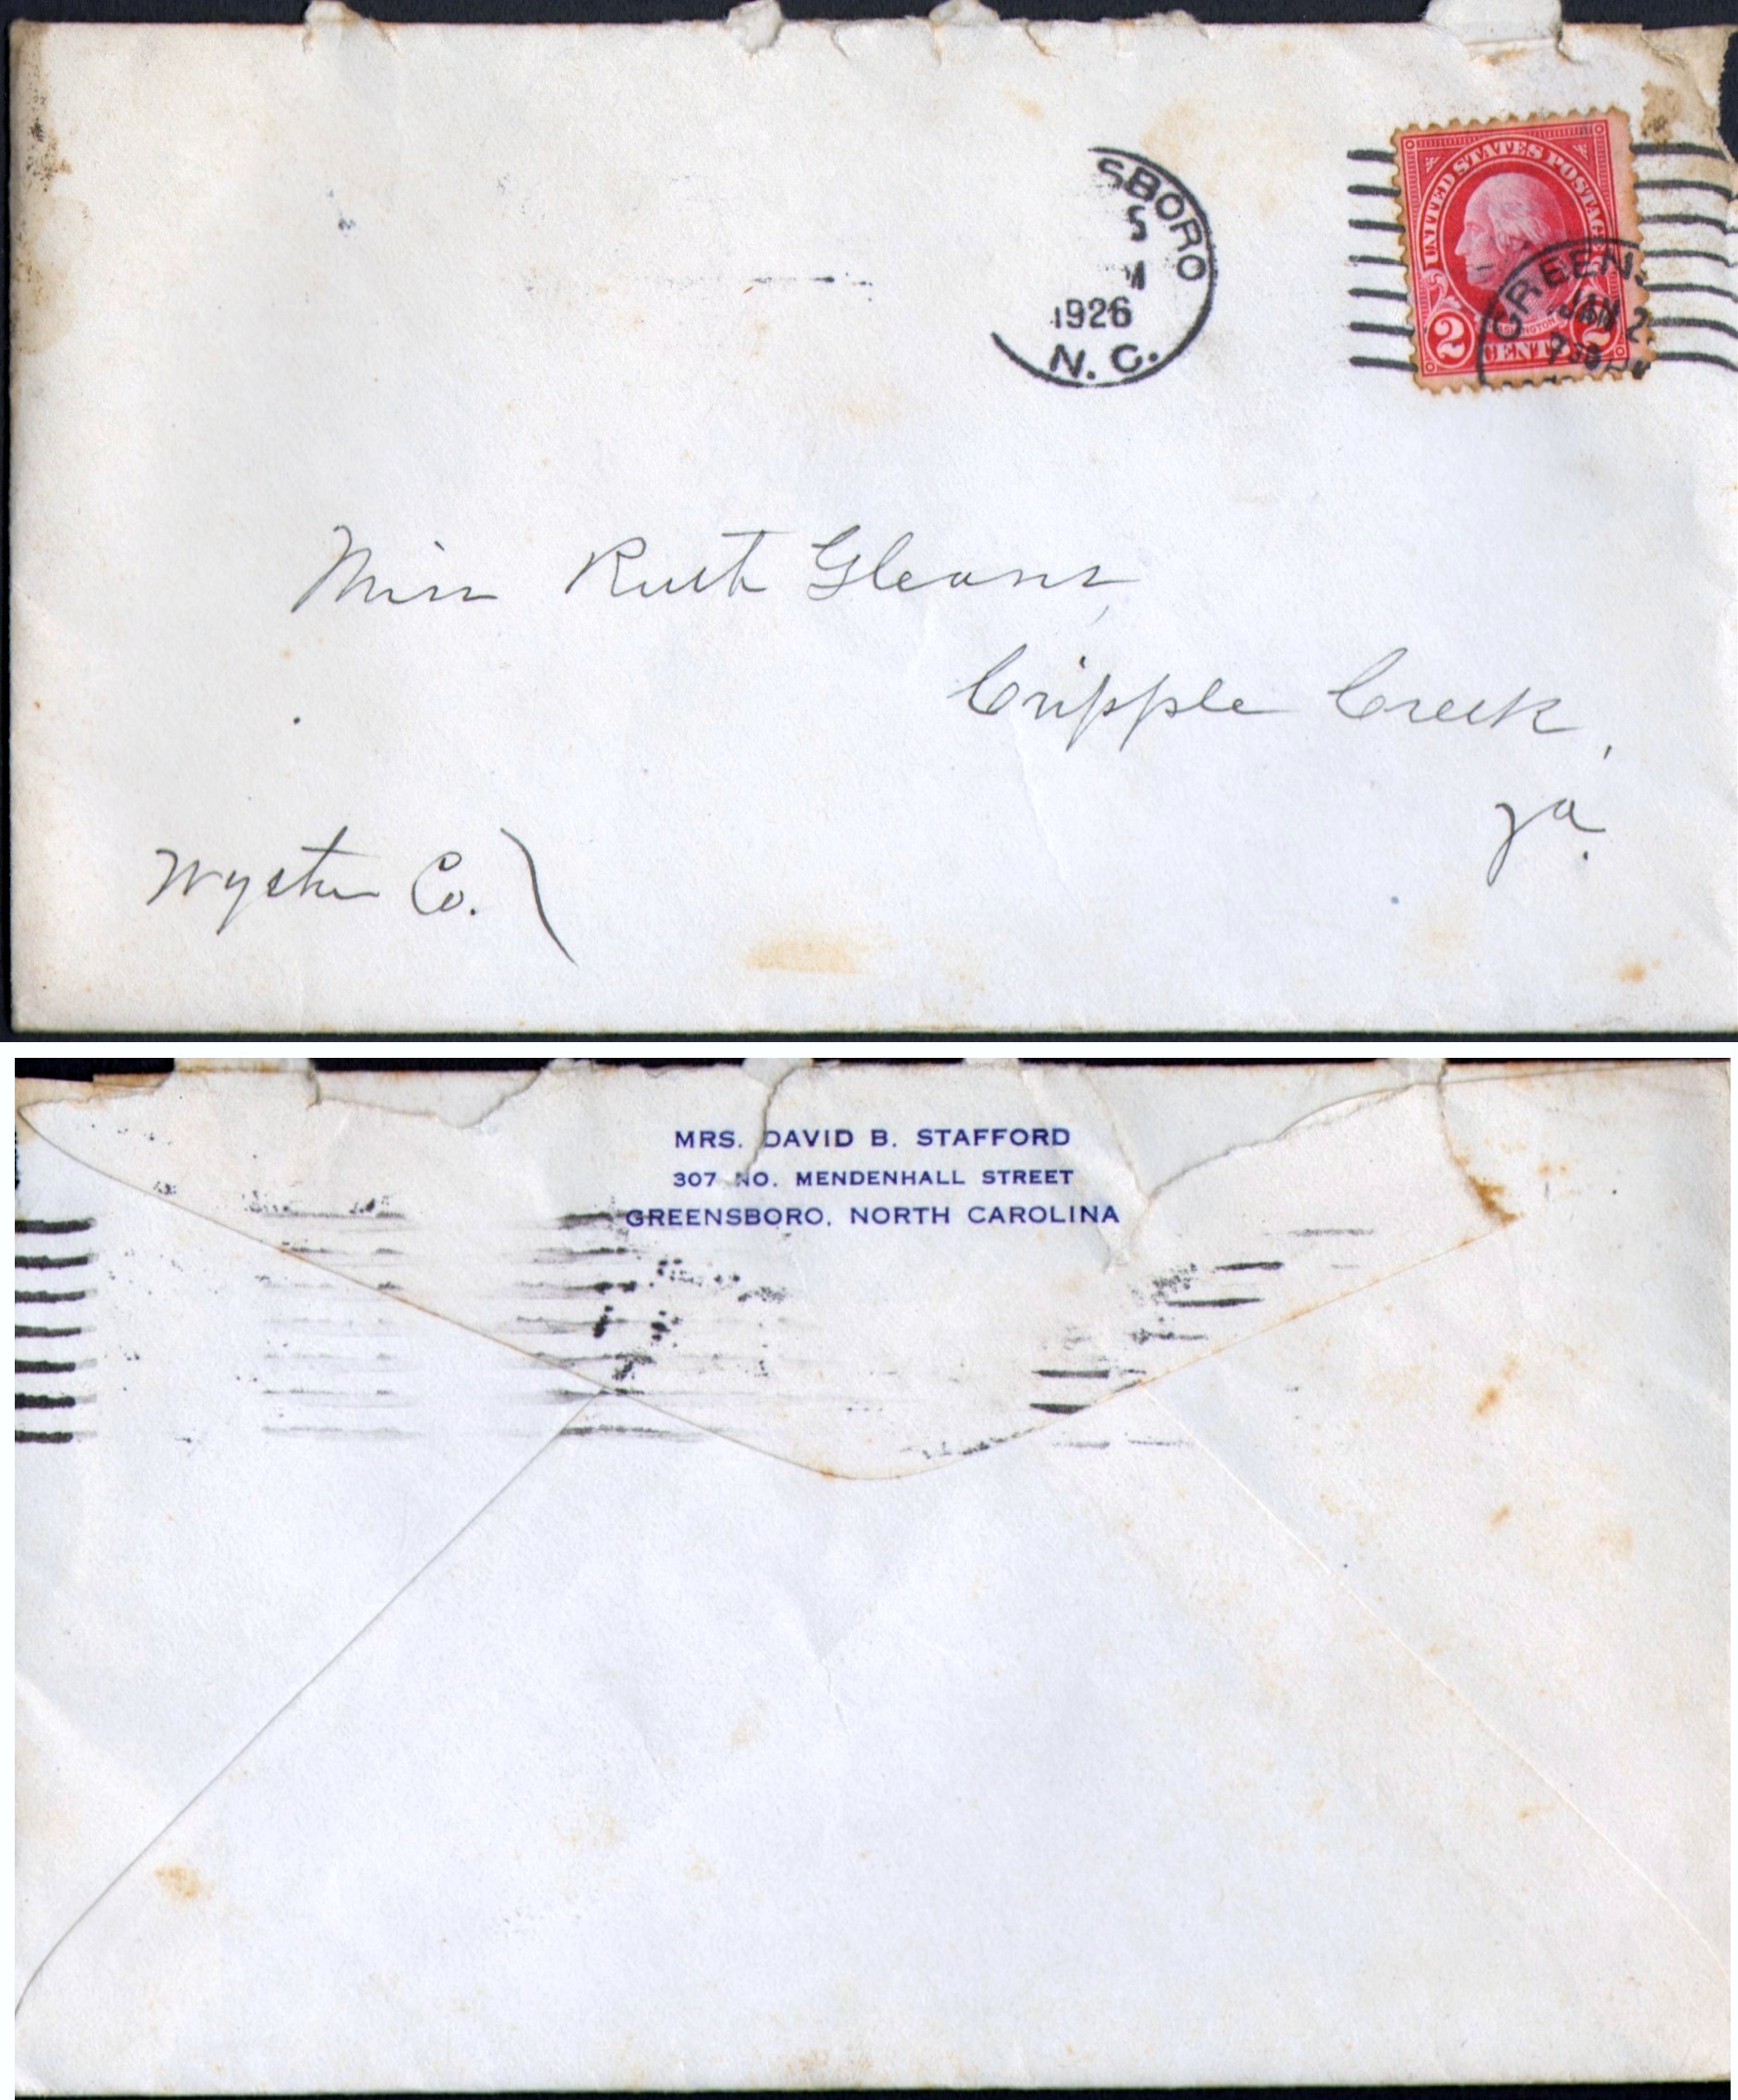 SBORO
5
M
1926
N. C.
UNITED STATES POSTAGE
GREENS
JAN 2
730
2 CENTS 2
Miss Ruth
Cripple Creek,
Va.
Wythe Co.
MRS. DAVID B. STAFFORD
307 NO. MENDENHALL STREET
GREENSBORO, NORTH CAROLINA